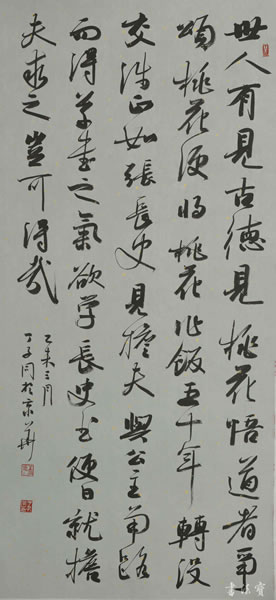 世人有見古德見桃花悟道者爭
頌桃花便将桃花作飯五十年轉没
交涉正如張長史見擔夫與公主爭路
而得草書之氣欲学長史書便日就擔
夫求之豈可得哉
乙未三月
於京華